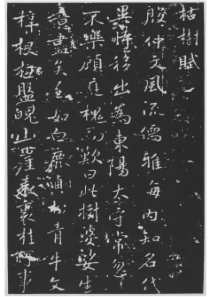 枯樹賦
殷仲文風流儒雅海內知名代
異時移出為東陽太守常忽〻
不樂顧庭槐而歎曰此樹婆娑生
意盡矣至如白鹿貞松青牛文
梓根柢盤魄山崖表裏桂何事